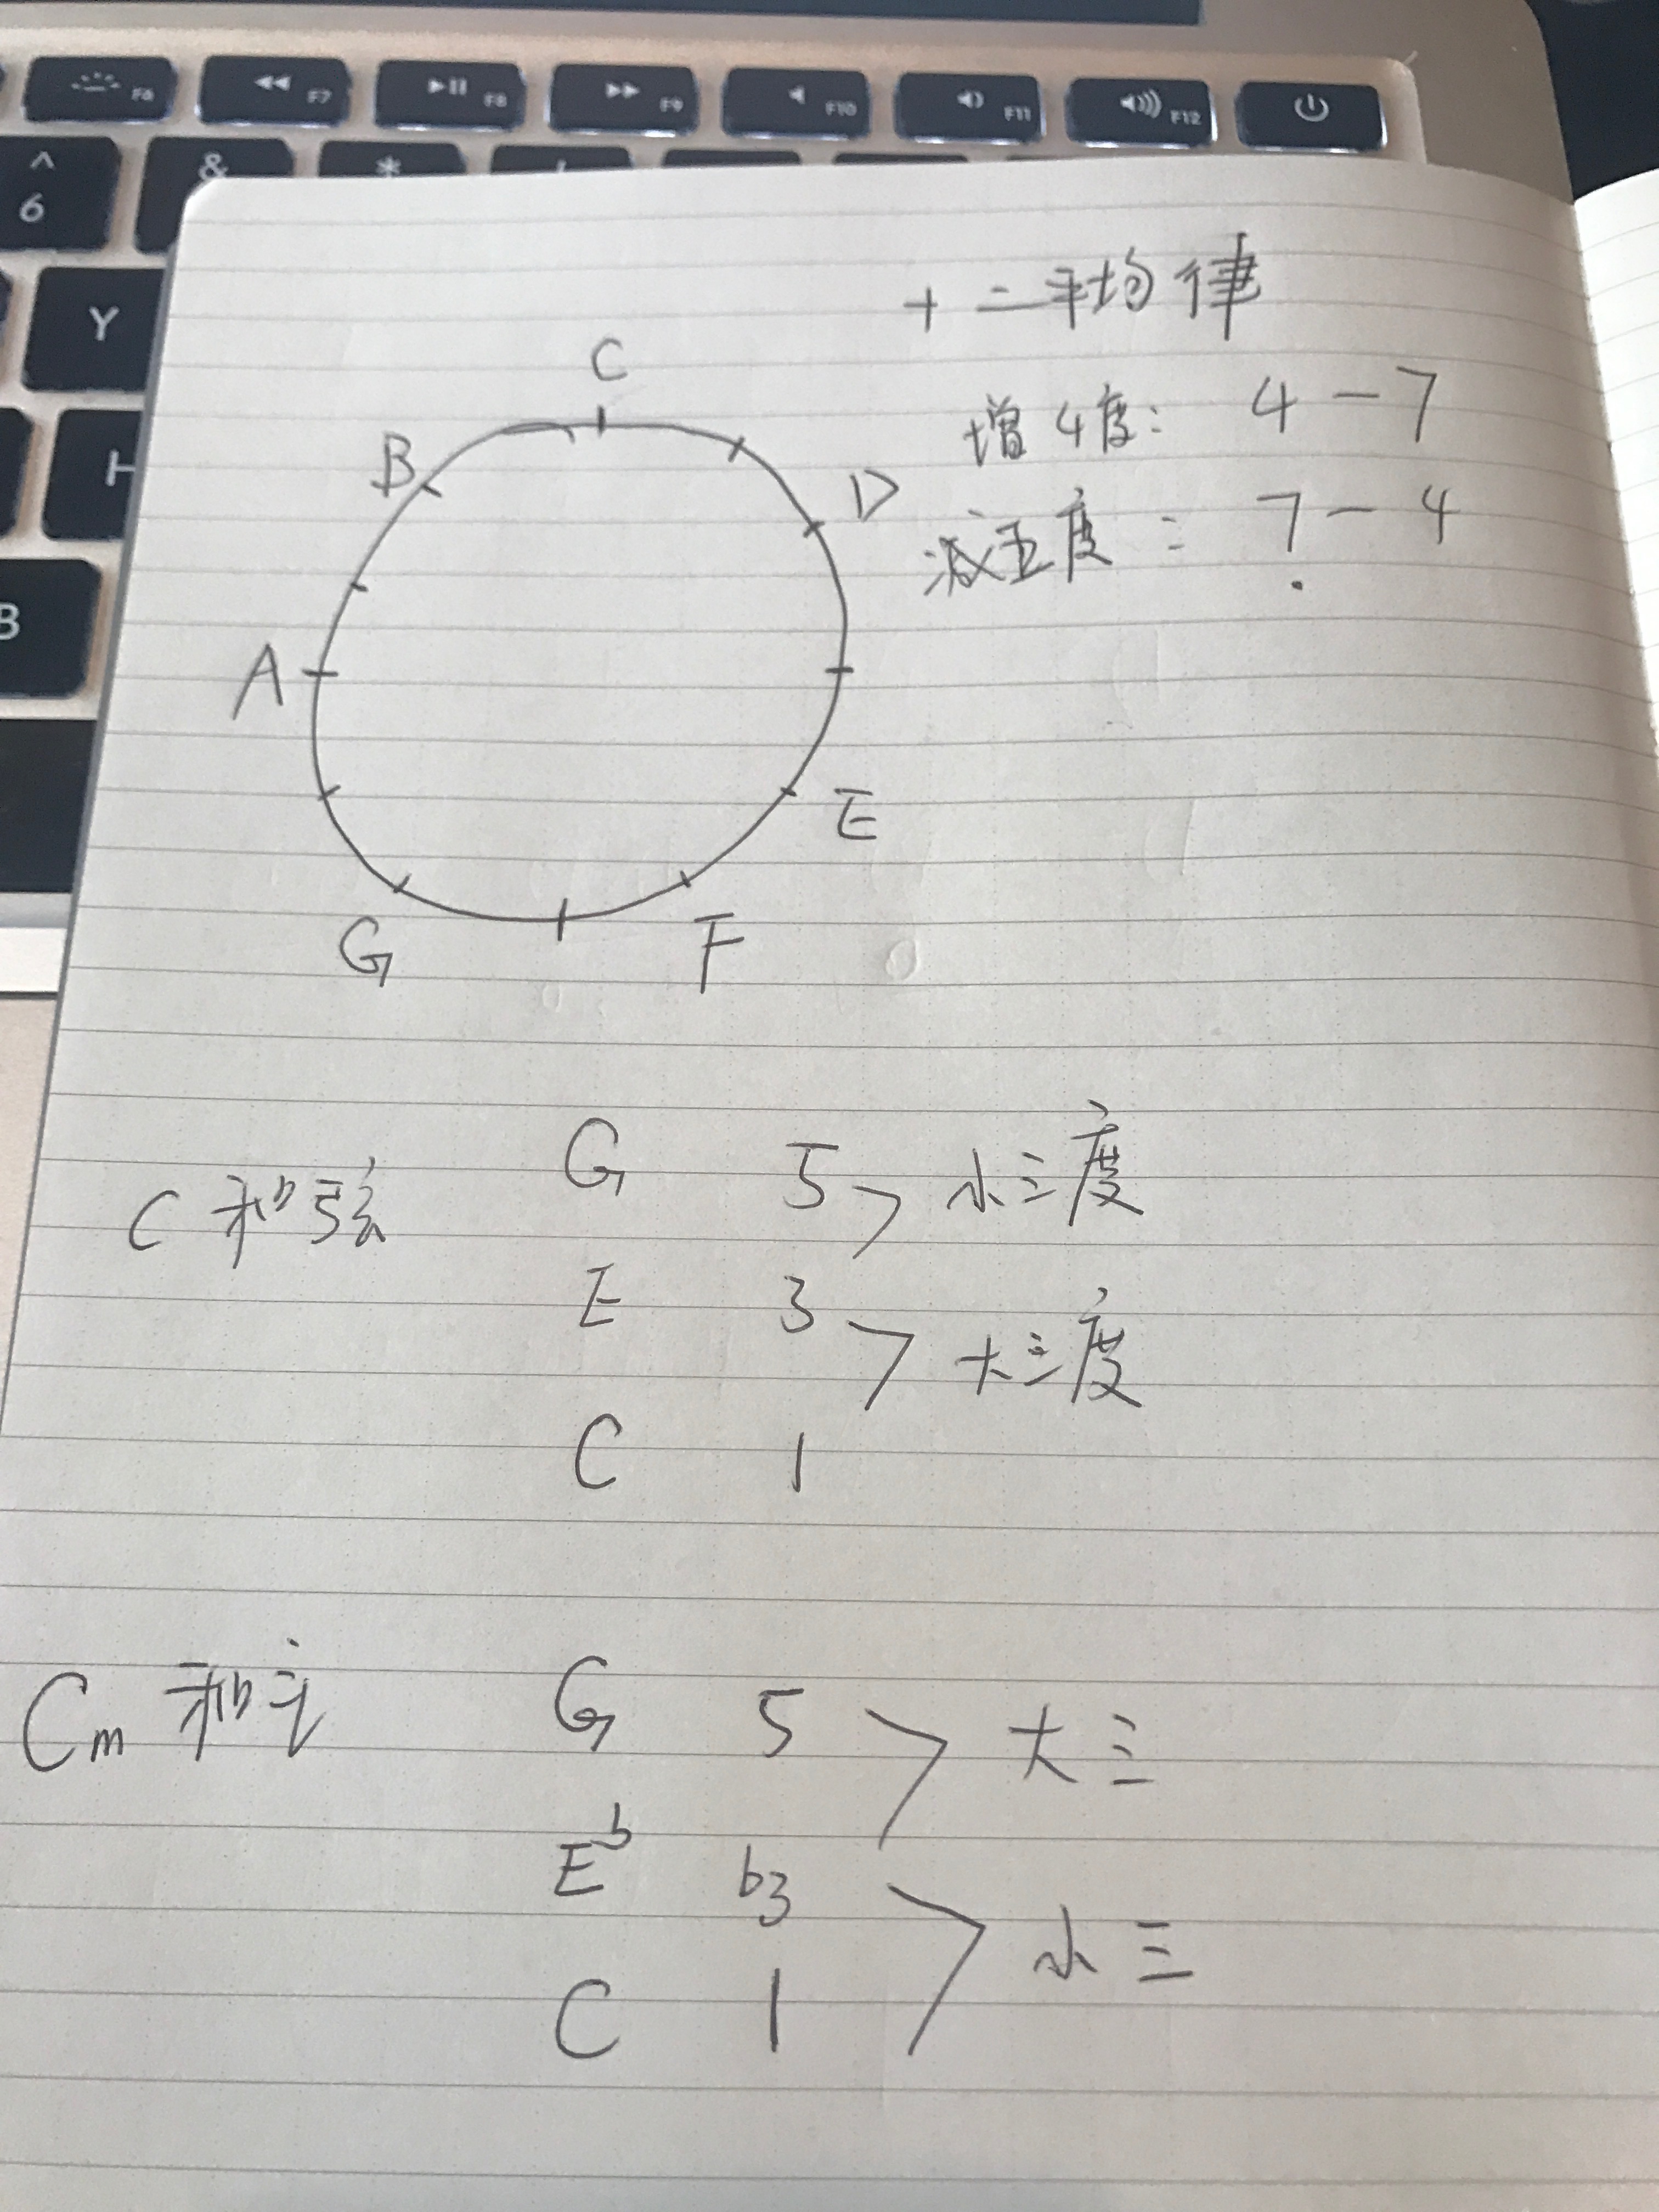 F6 F7 F8 F9 F10 F11 F12
^ & *
6
Y
H
B
十二平均律
增4度: 4 — 7
减五度: 7̣ — 4
C
B D
A
E
G F
C 和弦
G 5 > 小三度
E 3 > 大三度
C 1
Cm 和
G 5 > 大三
E♭ b3 > 小三
C 1